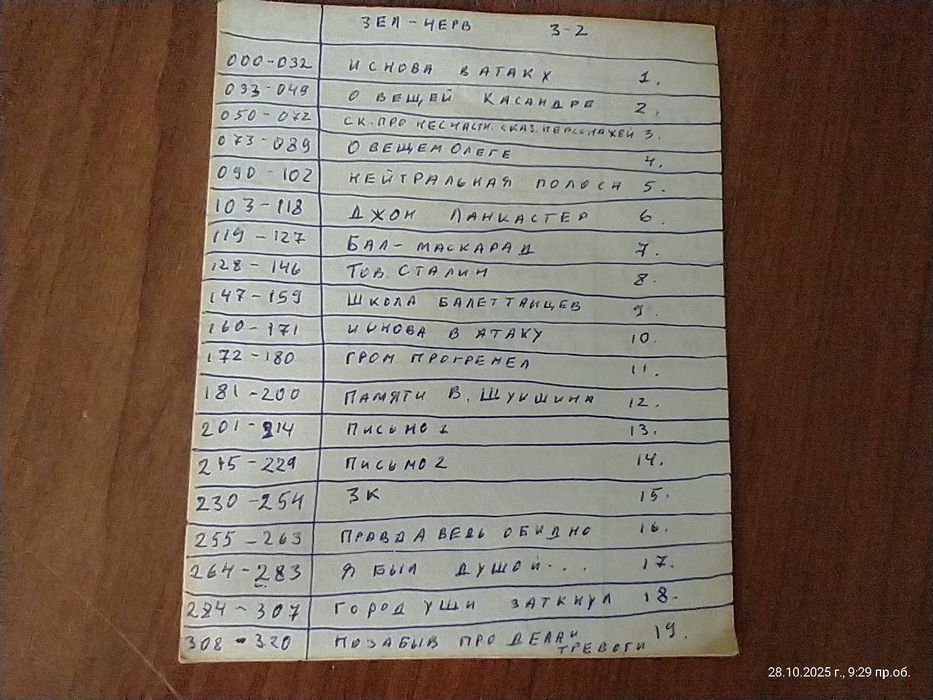 ЗЕЛ-ЧЕРВ 3-2
000-032 И СНОВА В АТАКУ 1.
033-049 О ВЕЩЕЙ КАСАНДРЕ 2.
050-072 СК. ПРО НЕСЧАСТН. СКАЗ. ПЕРСОНАЖЕЙ 3.
073-089 О ВЕЩЕМ ОЛЕГЕ 4.
090-102 НЕЙТРАЛЬНАЯ ПОЛОСИ 5.
103-118 ДЖОН ЛАНКАСТЕР 6.
119-127 БАЛ-МАСКАРАД 7.
128-146 ТОВ. СТАЛИН 8.
147-159 ШКОЛА БАЛЕТТАНЦЕВ 9.
160-171 И СНОВА В АТАКУ 10.
172-180 ГРОМ ПРОГРЕМЕЛ 11.
181-200 ПАМЯТИ В. ШУКШИНА 12.
201-214 ПИСЬМО 1 13.
215-229 ПИСЬМО 2 14.
230-254 ЗК 15.
255-263 ПРАВДА ВЕДЬ ОБИДНО 16.
264-283 Я БЫЛ ДУШОЙ... 17.
284-307 ГОРОД УШИ ЗАТКНУЛ 18.
308-320 ПОЗАБЫВ ПРО ДЕЛА И ТРЕВОГИ 19.
28.10.2025 г., 9:29 пр.об.